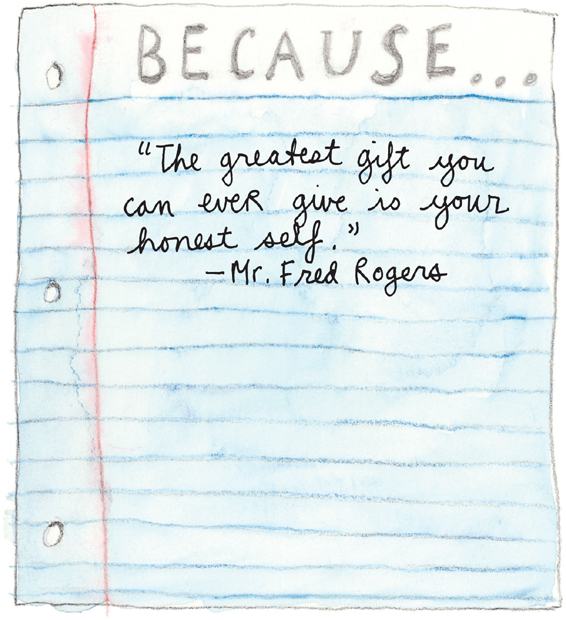 BECAUSE...
“The greatest gift you
can ever give is your
honest self.”
—Mr. Fred Rogers